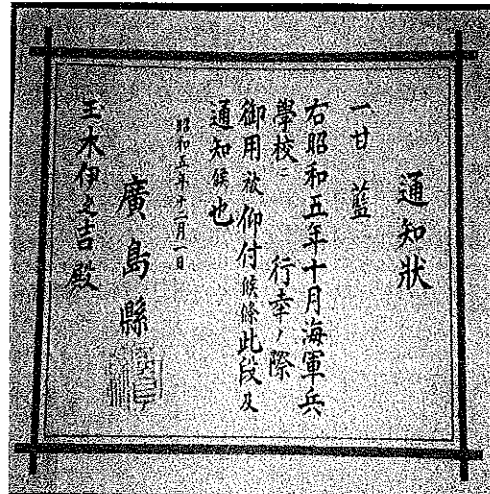 通知狀
一甘藍
右昭和五年十月海軍兵
學校ニ 行幸ノ際
御用被仰付候條此段及
通知候也
昭和五年十二月一日
廣島縣
玉木伊之吉殿